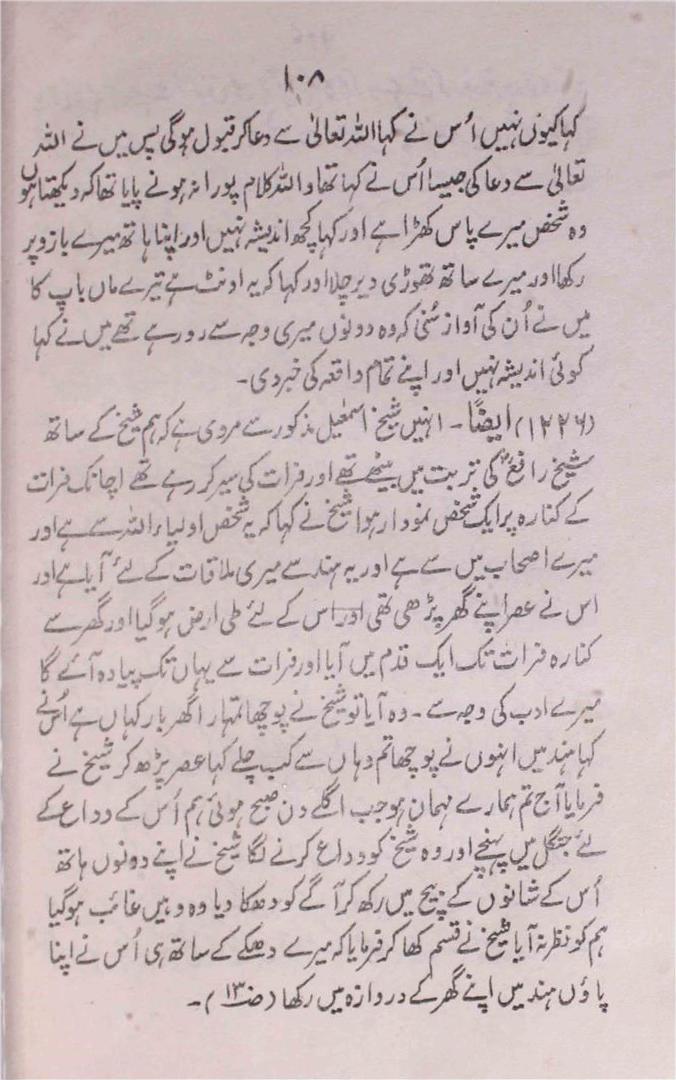 ۱۰۸
کہا کیوں نہیں اُس نے کہا اللہ تعالیٰ سے دعا کر قبول ہوگی پس میں نے اللہ
تعالیٰ سے دعا کی جیسا اُس نے کہا تھا واللہ کلام پورا نہ ہونے پایا تھا کہ دیکھتا ہوں
وہ شخص میرے پاس کھڑا ہے اور کہا کچھ اندیشہ نہیں اور اپنا ہاتھ میرے بازو پر
رکھا اور میرے ساتھ تھوڑی دیر چلا اور کہا کہ یہ اونٹ ہے تیرے ماں باپ کا
میں نے اُن کی آواز سُنی کہ وہ دونوں میری وجہ سے رو رہے تھے میں نے کہا
کوئی اندیشہ نہیں اور اپنے تمام واقعہ کی خبر دی۔
(۱۲۲۶) ایضًا۔ انہیں شیخ اسمٰعیل مذکور سے مروی ہے کہ ہم شیخ کے ساتھ
شیخ رافعؒ کی تربت میں بیٹھے تھے اور فرات کی سیر کر رہے تھے اچانک فرات
کے کنارہ پر ایک شخص نمودار ہوا شیخ نے کہا کہ یہ شخص اولیاء اللہ سے ہے اور
میرے اصحاب میں سے ہے اور یہ ہند سے میری ملاقات کے لئے آیا ہے اور
اس نے عصر اپنے گھر پڑھی تھی اور اس کے لئے طی ارض ہوگیا اور گھر سے
کنارہ فرات تک ایک قدم میں آیا اور فرات سے یہاں تک پیادہ آئے گا
میرے ادب کی وجہ سے۔ وہ آیا تو شیخ نے پوچھا تمہارا گھر بار کہاں ہے اُس نے
کہا ہند میں انہوں نے پوچھا تم وہاں سے کب چلے کہا عصر پڑھ کر شیخ نے
فرمایا آج تم ہمارے مہمان ہو جب اگلے دن صبح ہوئی ہم اُس کے وداع کے
لئے جنگل میں پہنچے اور وہ شیخ کو وداع کرنے لگا شیخ نے اپنے دونوں ہاتھ
اُس کے شانوں کے بیچ میں رکھ کر آگے کو دھکا دیا وہ وہیں غائب ہوگیا
ہم کو نظر نہ آیا شیخ نے قسم کھا کر فرمایا کہ میرے دھکے کے ساتھ ہی اُس نے اپنا
پاؤں ہند میں اپنے گھر کے دروازہ میں رکھا (صـ۱۳)۔